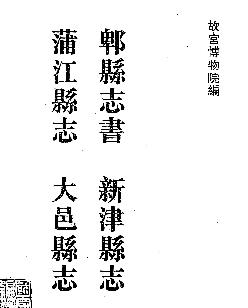 故宮博物院編
郫縣志書 新津縣志
蒲江縣志 大邑縣志